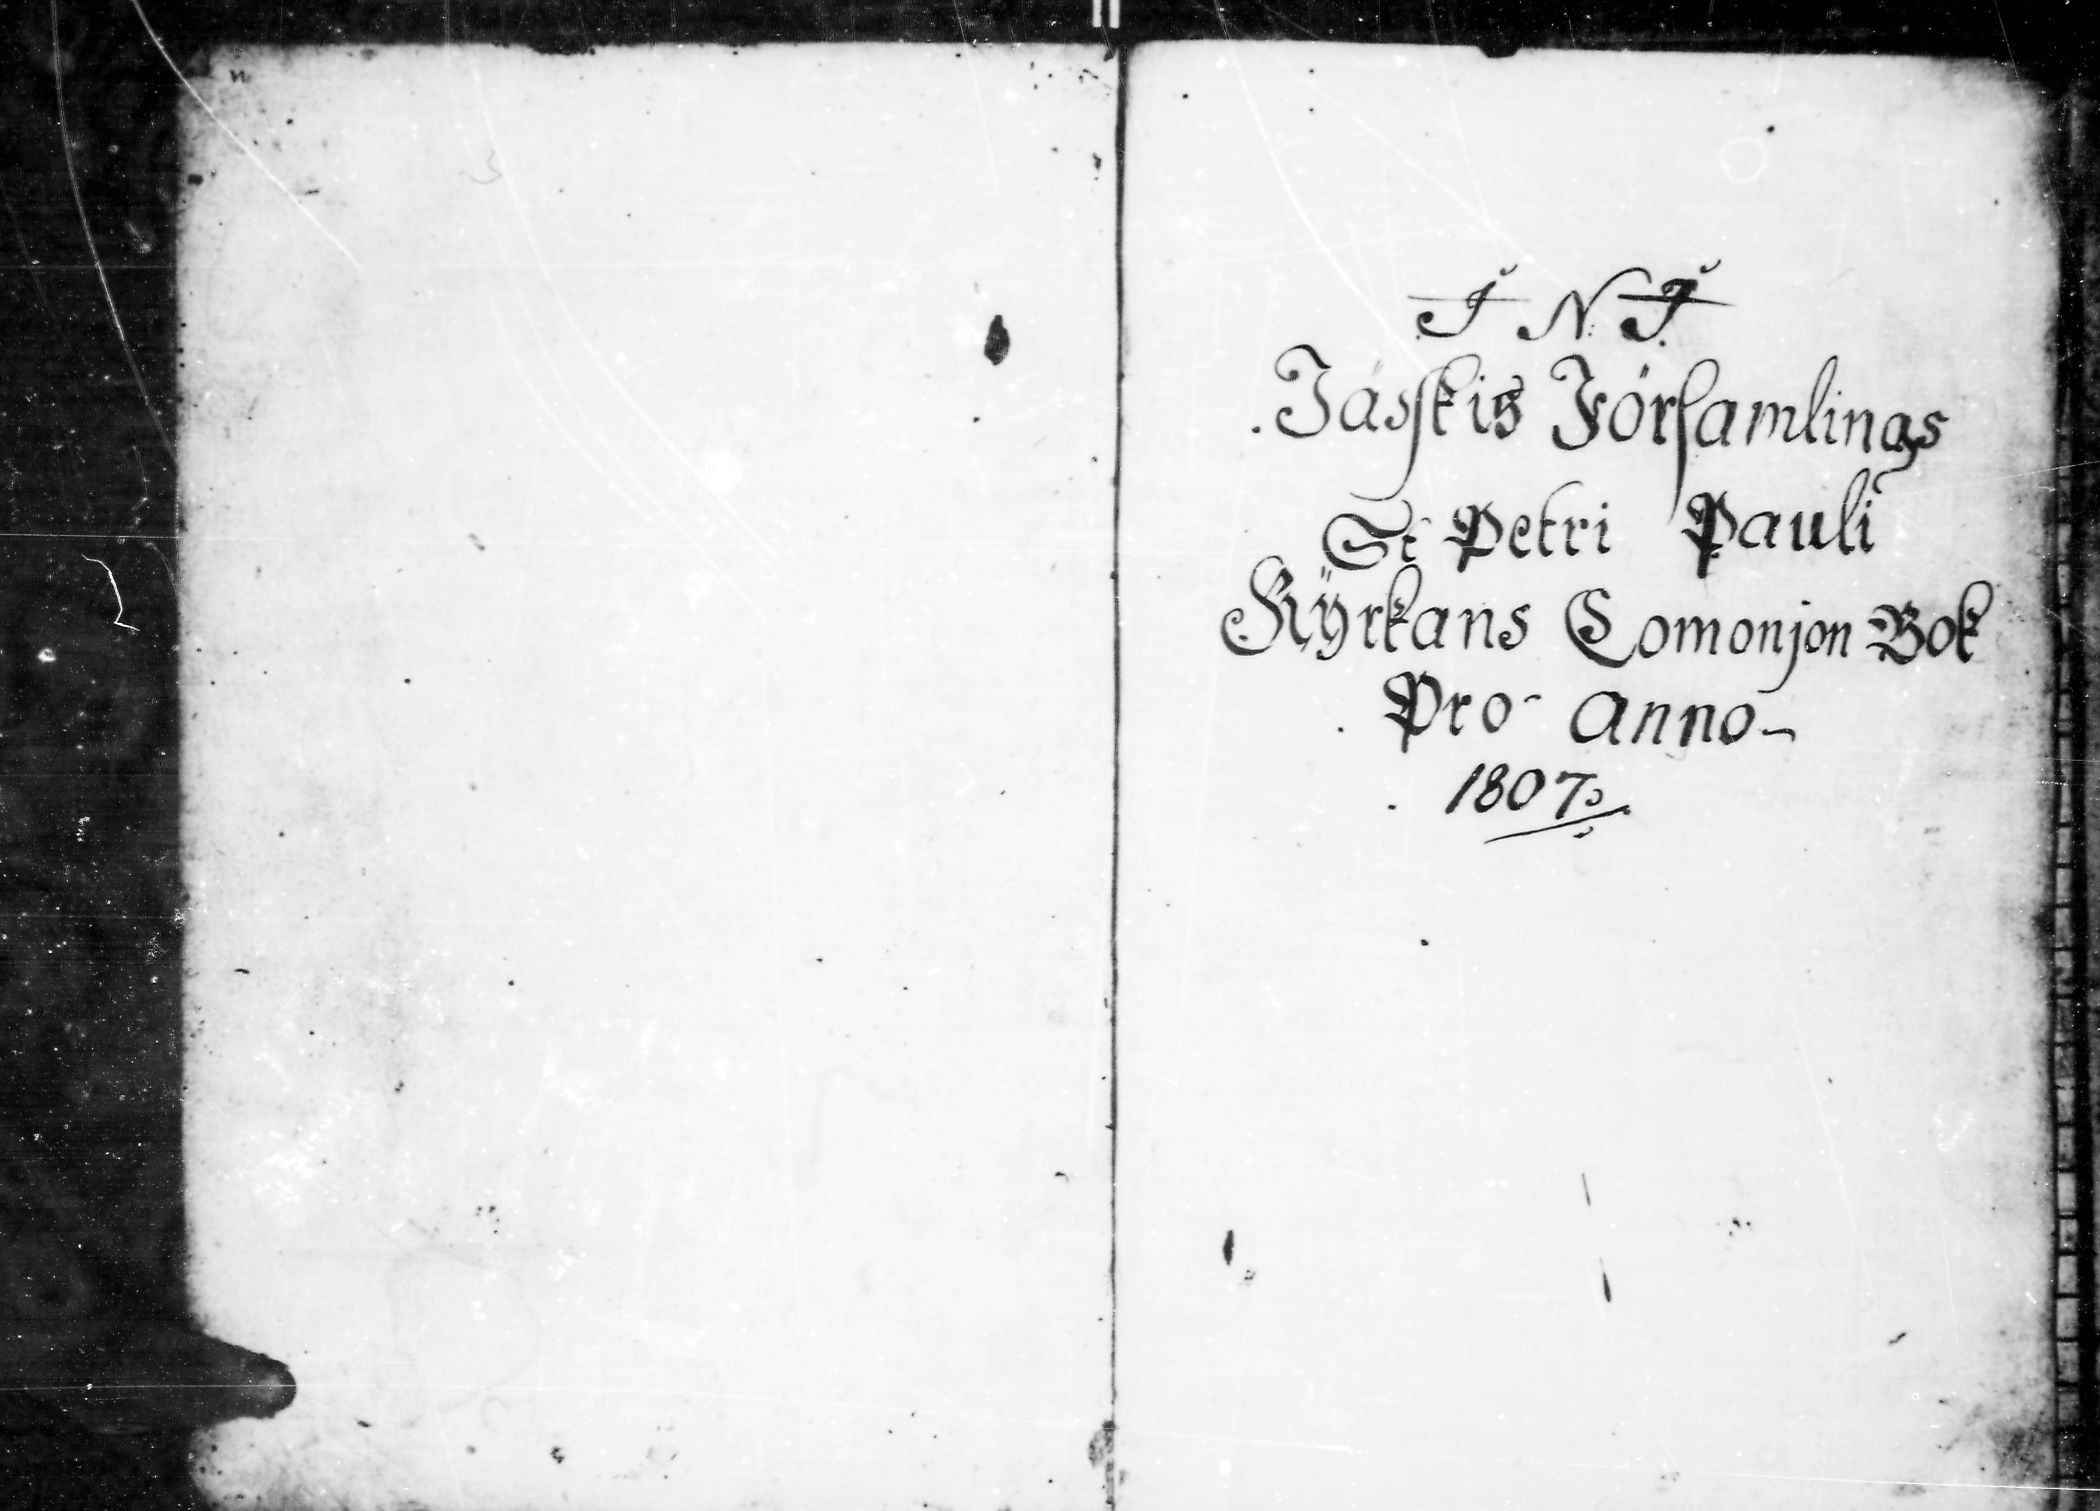 J. N. J.
Jässkis Församlings
St Petri Pauli
Kÿrkans Comonjon Bok
Pro Anno
1807.